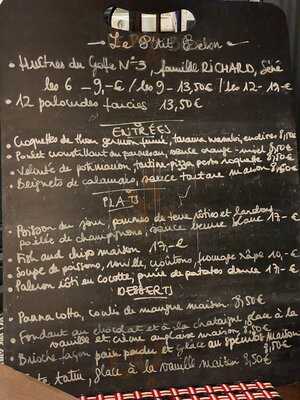 Le P'tit Belon
• Huîtres du Golfe N°3, famille RICHARD, Séné
les 6 - 9,-€ / les 9 - 13,50€ / les 12 - 17-€
• 12 palourdes farcies 13,50€
ENTRÉES
• Croquettes de thon germon fumé, wasabi, 8,50€
• Poulet croustillant au parmesan, sauce orange-miel 8,50€
• Velouté de potimarron, tartine-pizza pesto roquette 8,50€
• Beignets de calamars, sauce tartare maison 8,50€
PLATS
• Poisson du jour, pommes de terre rôties et
poêlée de champignons, sauce beurre blanc 17-€
• Fish and chips maison 17,-€
• Soupe de poissons, rouille, croûtons, fromage râpé 10,-€
• Paleron rôti en cocotte, purée de patates douces 17-€
DESSERTS
• Panna cota, coulis de mangue maison 8,50€
• Fondant au chocolat et à la chataigne, glace à la
vanille et crème anglaise maison 8,50€
• Brioche façon pain perdu et glace au spéculos maison
8,50€
tatin, glace à la vanille maison 8,50€